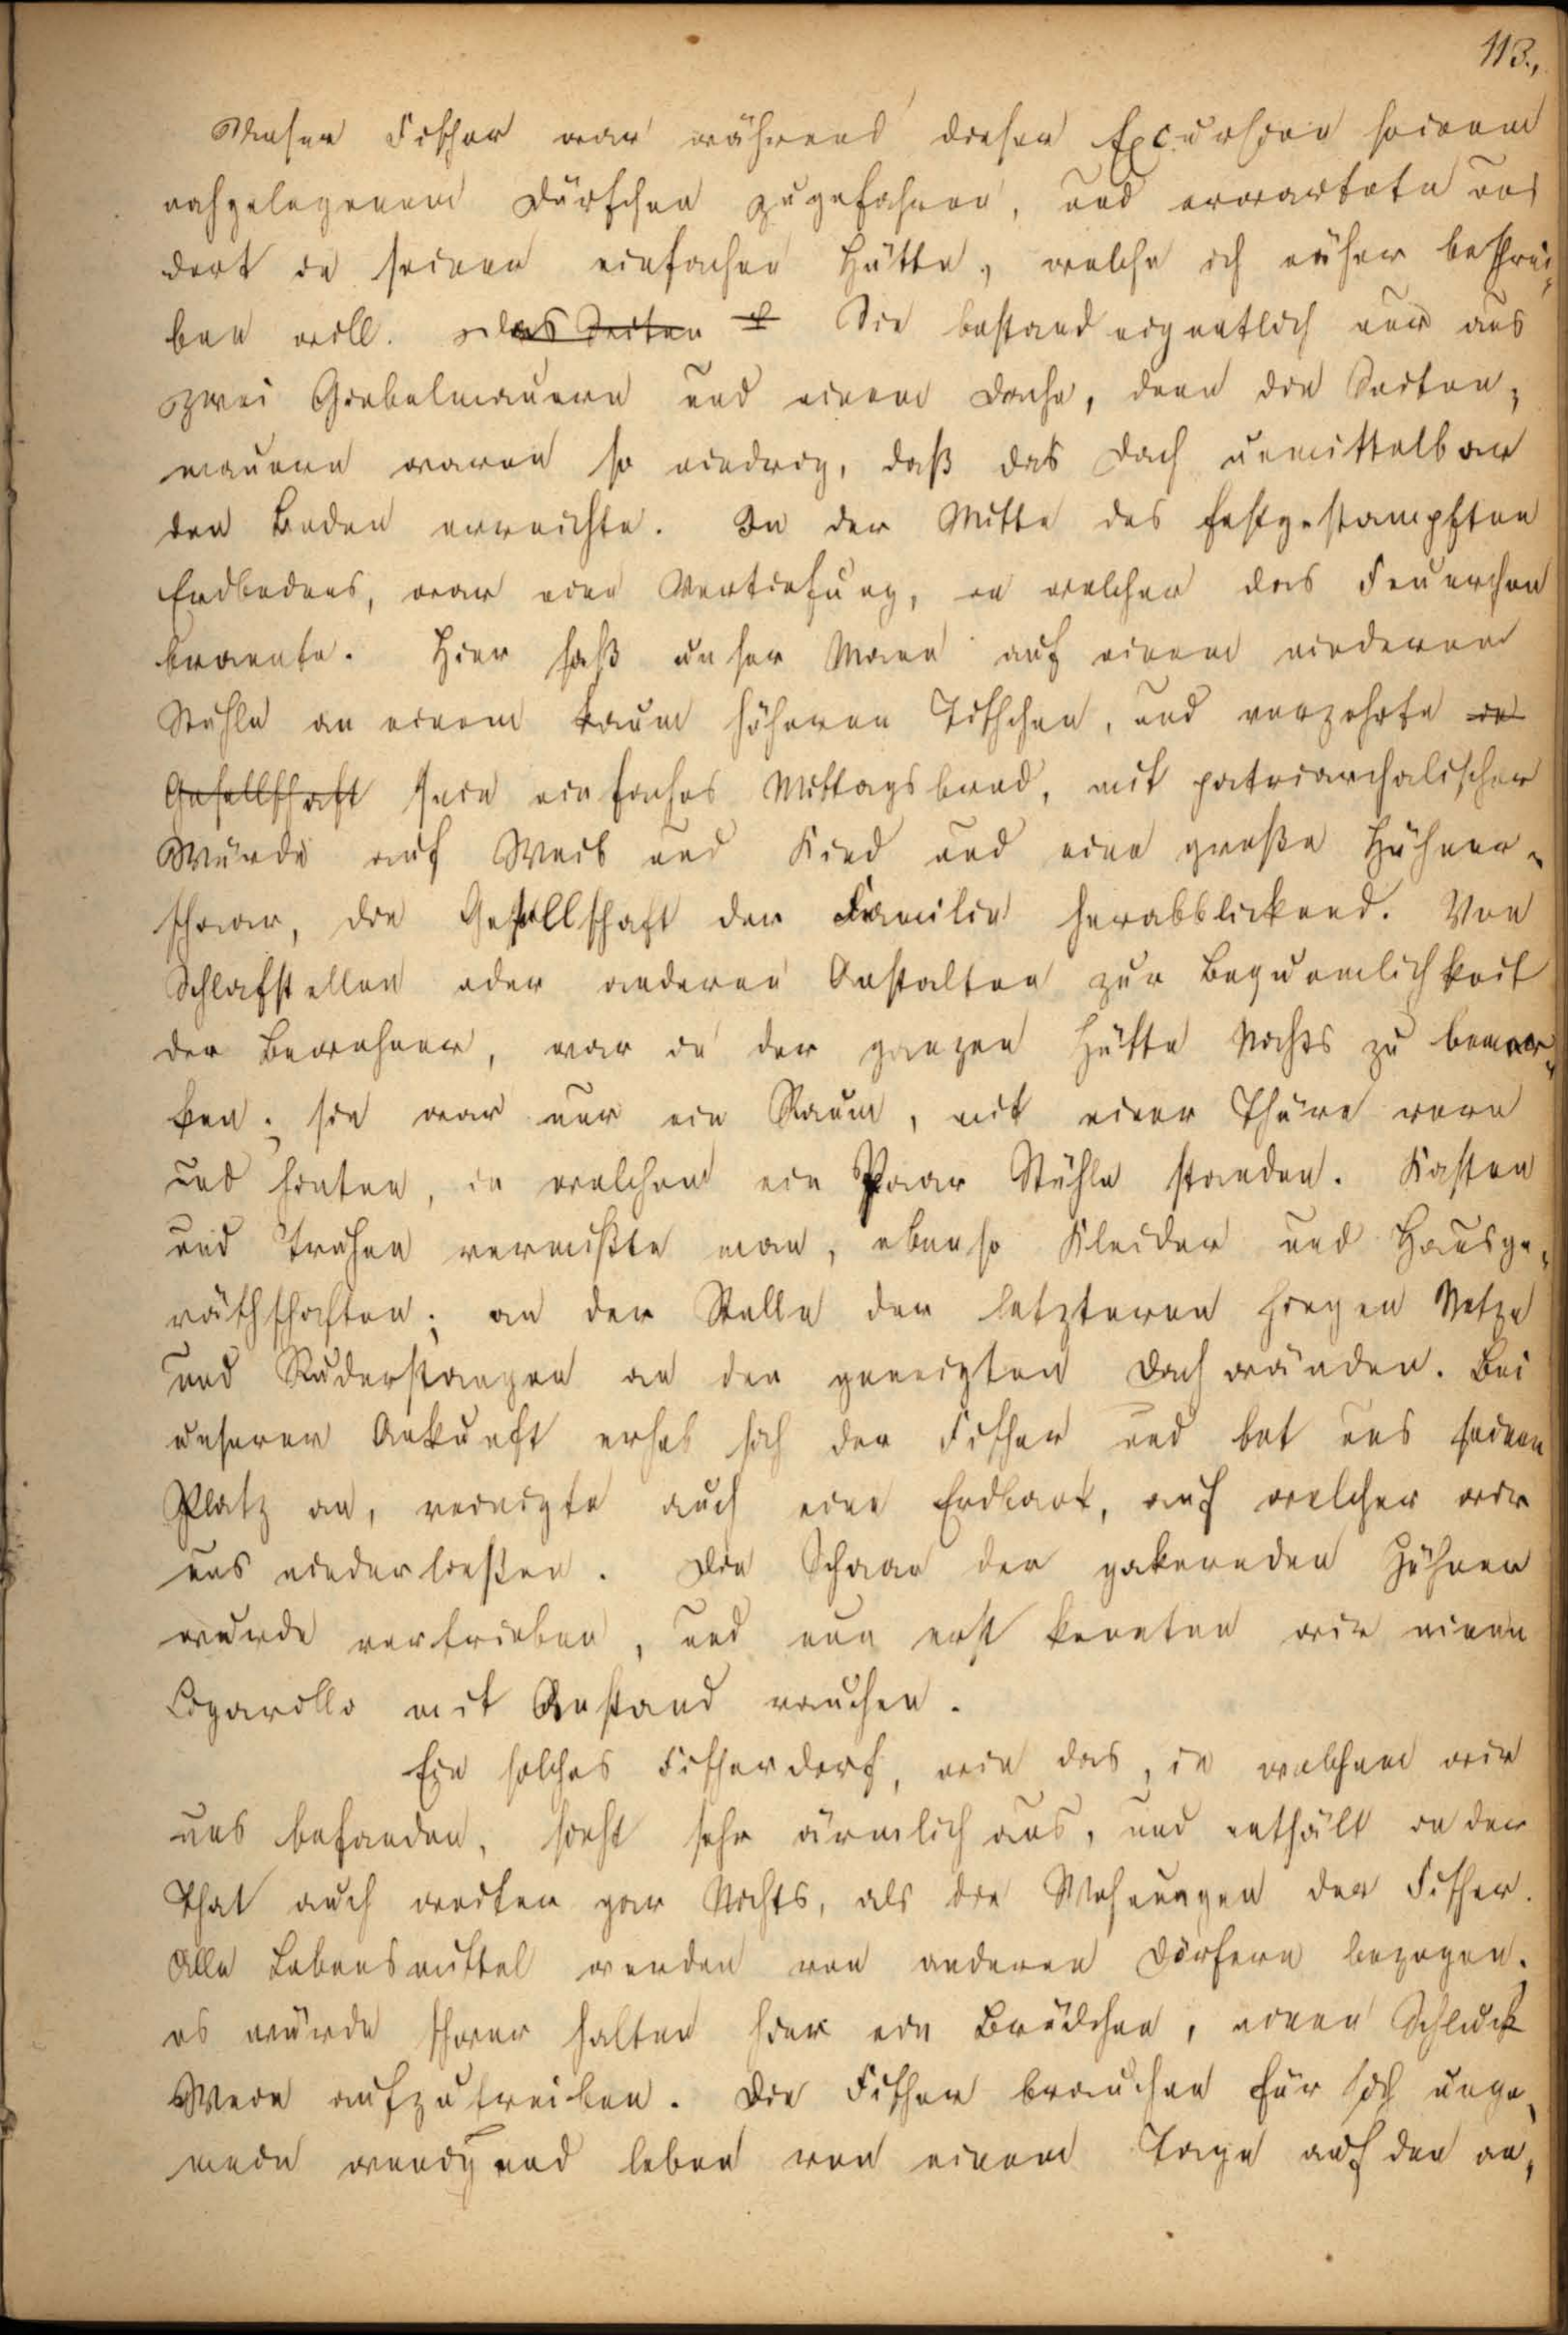 113.,
Unser Fischer war während dieser Excursion seinem
nahgelegenem Dörfchen zugefahren, und erwartete uns
dort in seiner einfachen Hütte, welche ich näher beschrei-
ben will. Das Seiten Sie bestand eigentlich nur aus
zwei Giebelmauern und einem Dache, denn die Seiten-
mauern waren so niedrig, daß das Dach unmittelbar
den Boden erreichte. In der Mitte des festgestampften
Erdbodens, war eine Vertiefung, in welcher das Feuerchen
brannte. Hier saß unser Mann auf einem niederen
Stuhle an einem kaum höheren Tischchen, und verzehrte in
Gesellschaft sein einfaches Mittagsbrod, mit patriarchalischer
Würde auf Weib und Kind und eine große Hühner-
schaar, die Gesellschaft der Familie herabblickend. Von
Schlafstellen oder anderen Anstalten zur Bequemlichkeit
der Bewohner, war in der ganzen Hütte Nichts zu bemer-
ken; sie war nur ein Raum, mit einer Thüre vorn
und hinten, in welchem ein Paar Stühle standen. Kasten
und Truhen vermißte man, ebenso Kleider und Hausge-
räthschaften; an der Stelle der letzteren hingen Netze
und Ruderstangen an den geneigten Dachwänden. Bei
unserer Ankunft erhob sich der Fischer und bot uns seinen
Platz an, reinigte auch eine Erdbank, auf welcher wir
uns niederließen. Die Schaar der gakernden Hühner
wurde vertrieben, und nun erst konnten wir einen
Cigarillo mit Anstand rauchen.
Ein solches Fischerdorf, wie das, in welchem wir
uns befanden, sieht sehr ärmlich aus, und enthält in der
That auch weiter gar Nichts, als die Wohnungen der Fischer.
Alle Lebensmittel werden von anderen Dörfern bezogen;
es würde schwer halten hier ein Brödchen, einen Schluck
Wein aufzutreiben. Die Fischer brauchen für sich unge-
mein wenig und leben von einem Tage auf den an-